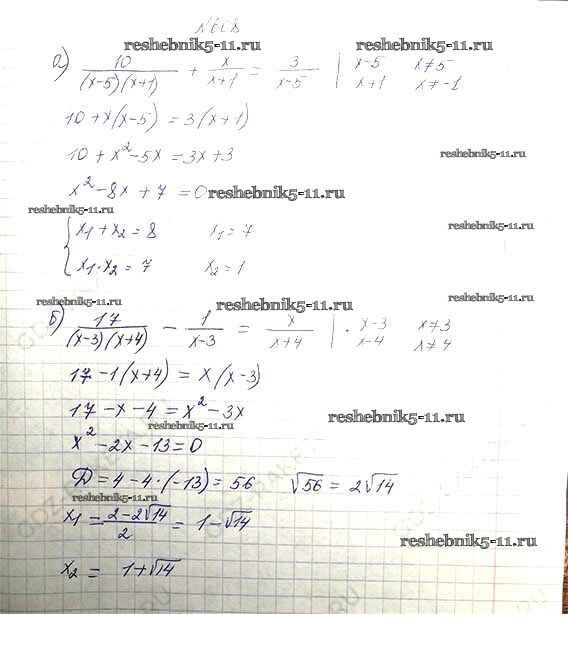 reshebnik5-11.ru reshebnik5-11.ru
а) 10/((x-5)(x+1)) + x/(x+1) = 3/(x-5) | x-5 x≠5
x+1 x≠-1
10+x(x-5) = 3(x+1)
10+x²-5x = 3x+3
reshebnik5-11.ru
x²-8x+7 = 0
reshebnik5-11.ru
reshebnik5-11.ru
{ x₁+x₂=8 x₁=7
reshebnik5-11.ru
x₁·x₂=7 x₂=1
reshebnik5-11.ru reshebnik5-11.ru reshebnik5-11.ru
б) 17/((x-3)(x+4)) - 1/(x-3) = x/(x+4) | · x-3 x≠3
x-4 x≠4
17-1(x+4) = x(x-3)
17-x-4 = x²-3x
reshebnik5-11.ru
reshebnik5-11.ru
x²-2x-13=0
D=4-4·(-13)=56 √56=2√14
reshebnik5-11.ru
x₁ = (2-2√14)/2 = 1-√14
reshebnik5-11.ru
x₂ = 1+√14